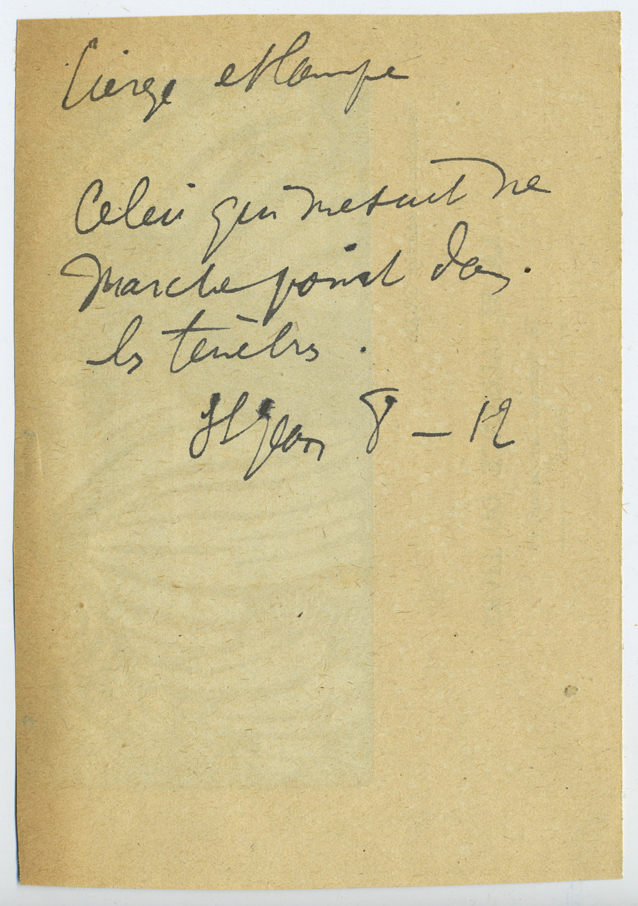 Cierge et lampe
Celui qui me suit ne
marche point dans
les ténèbres.
St Jean 8 - 12